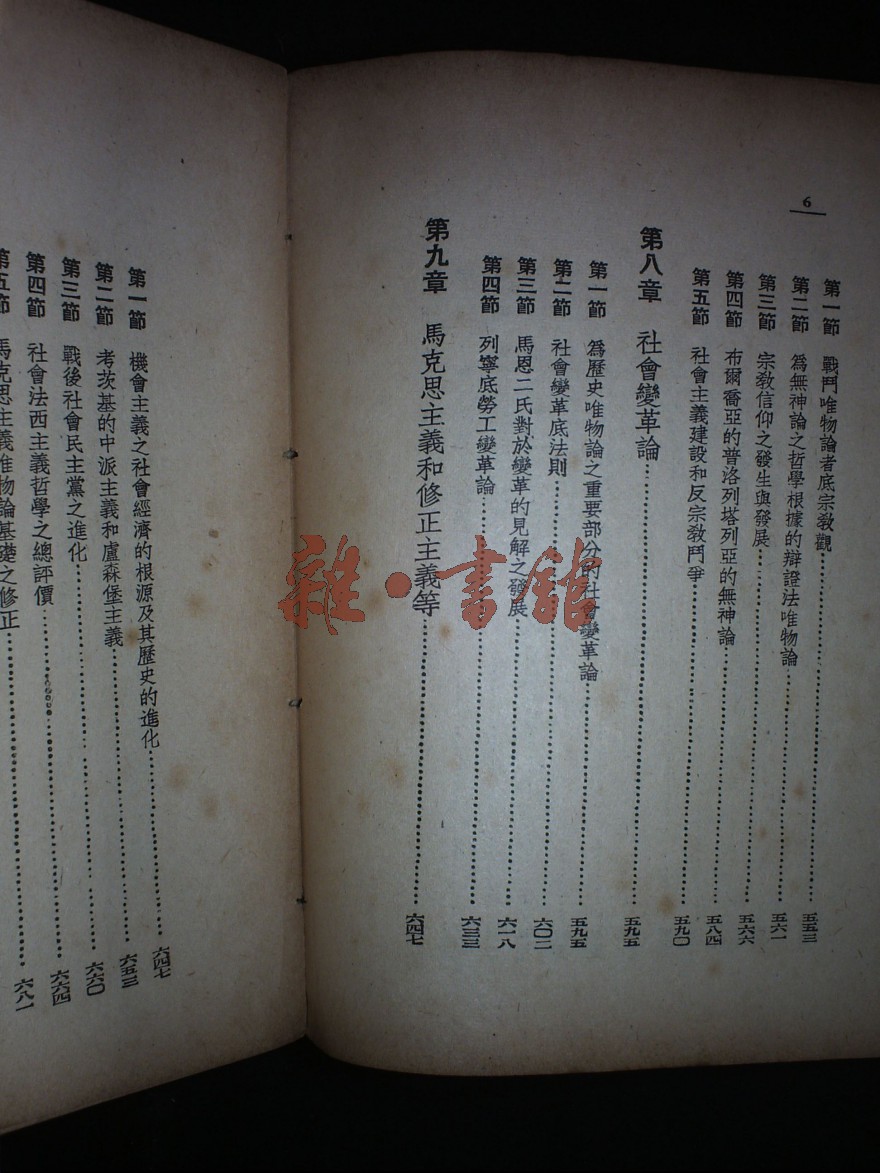 6
第一節 戰鬥唯物論者底宗教觀……五五三
第二節 為無神論之哲學根據的辯證法唯物論……五六一
第三節 宗教信仰之發生與發展……五六六
第四節 布爾喬亞的普洛列塔列亞的無神論……五八四
第五節 社會主義建設和反宗教鬥爭……五九〇
第八章 社會變革論……五九五
第一節 為歷史唯物論之重要部分的社會變革論……五九五
第二節 社會變革底法則……六〇二
第三節 馬恩二氏對於變革的見解之發展……六一八
第四節 列寧底勞工變革論……六三三
第九章 馬克思主義和修正主義等……六四七
第一節 機會主義之社會經濟的根源及其歷史的進化……六四七
第二節 考茨基的中派主義和盧森堡主義……六五三
第三節 戰後社會民主黨之進化……六六〇
第四節 社會法西主義哲學之總評價……六六四
第五節 馬克思主義唯物論基礎之修正……六八一
雜·書館